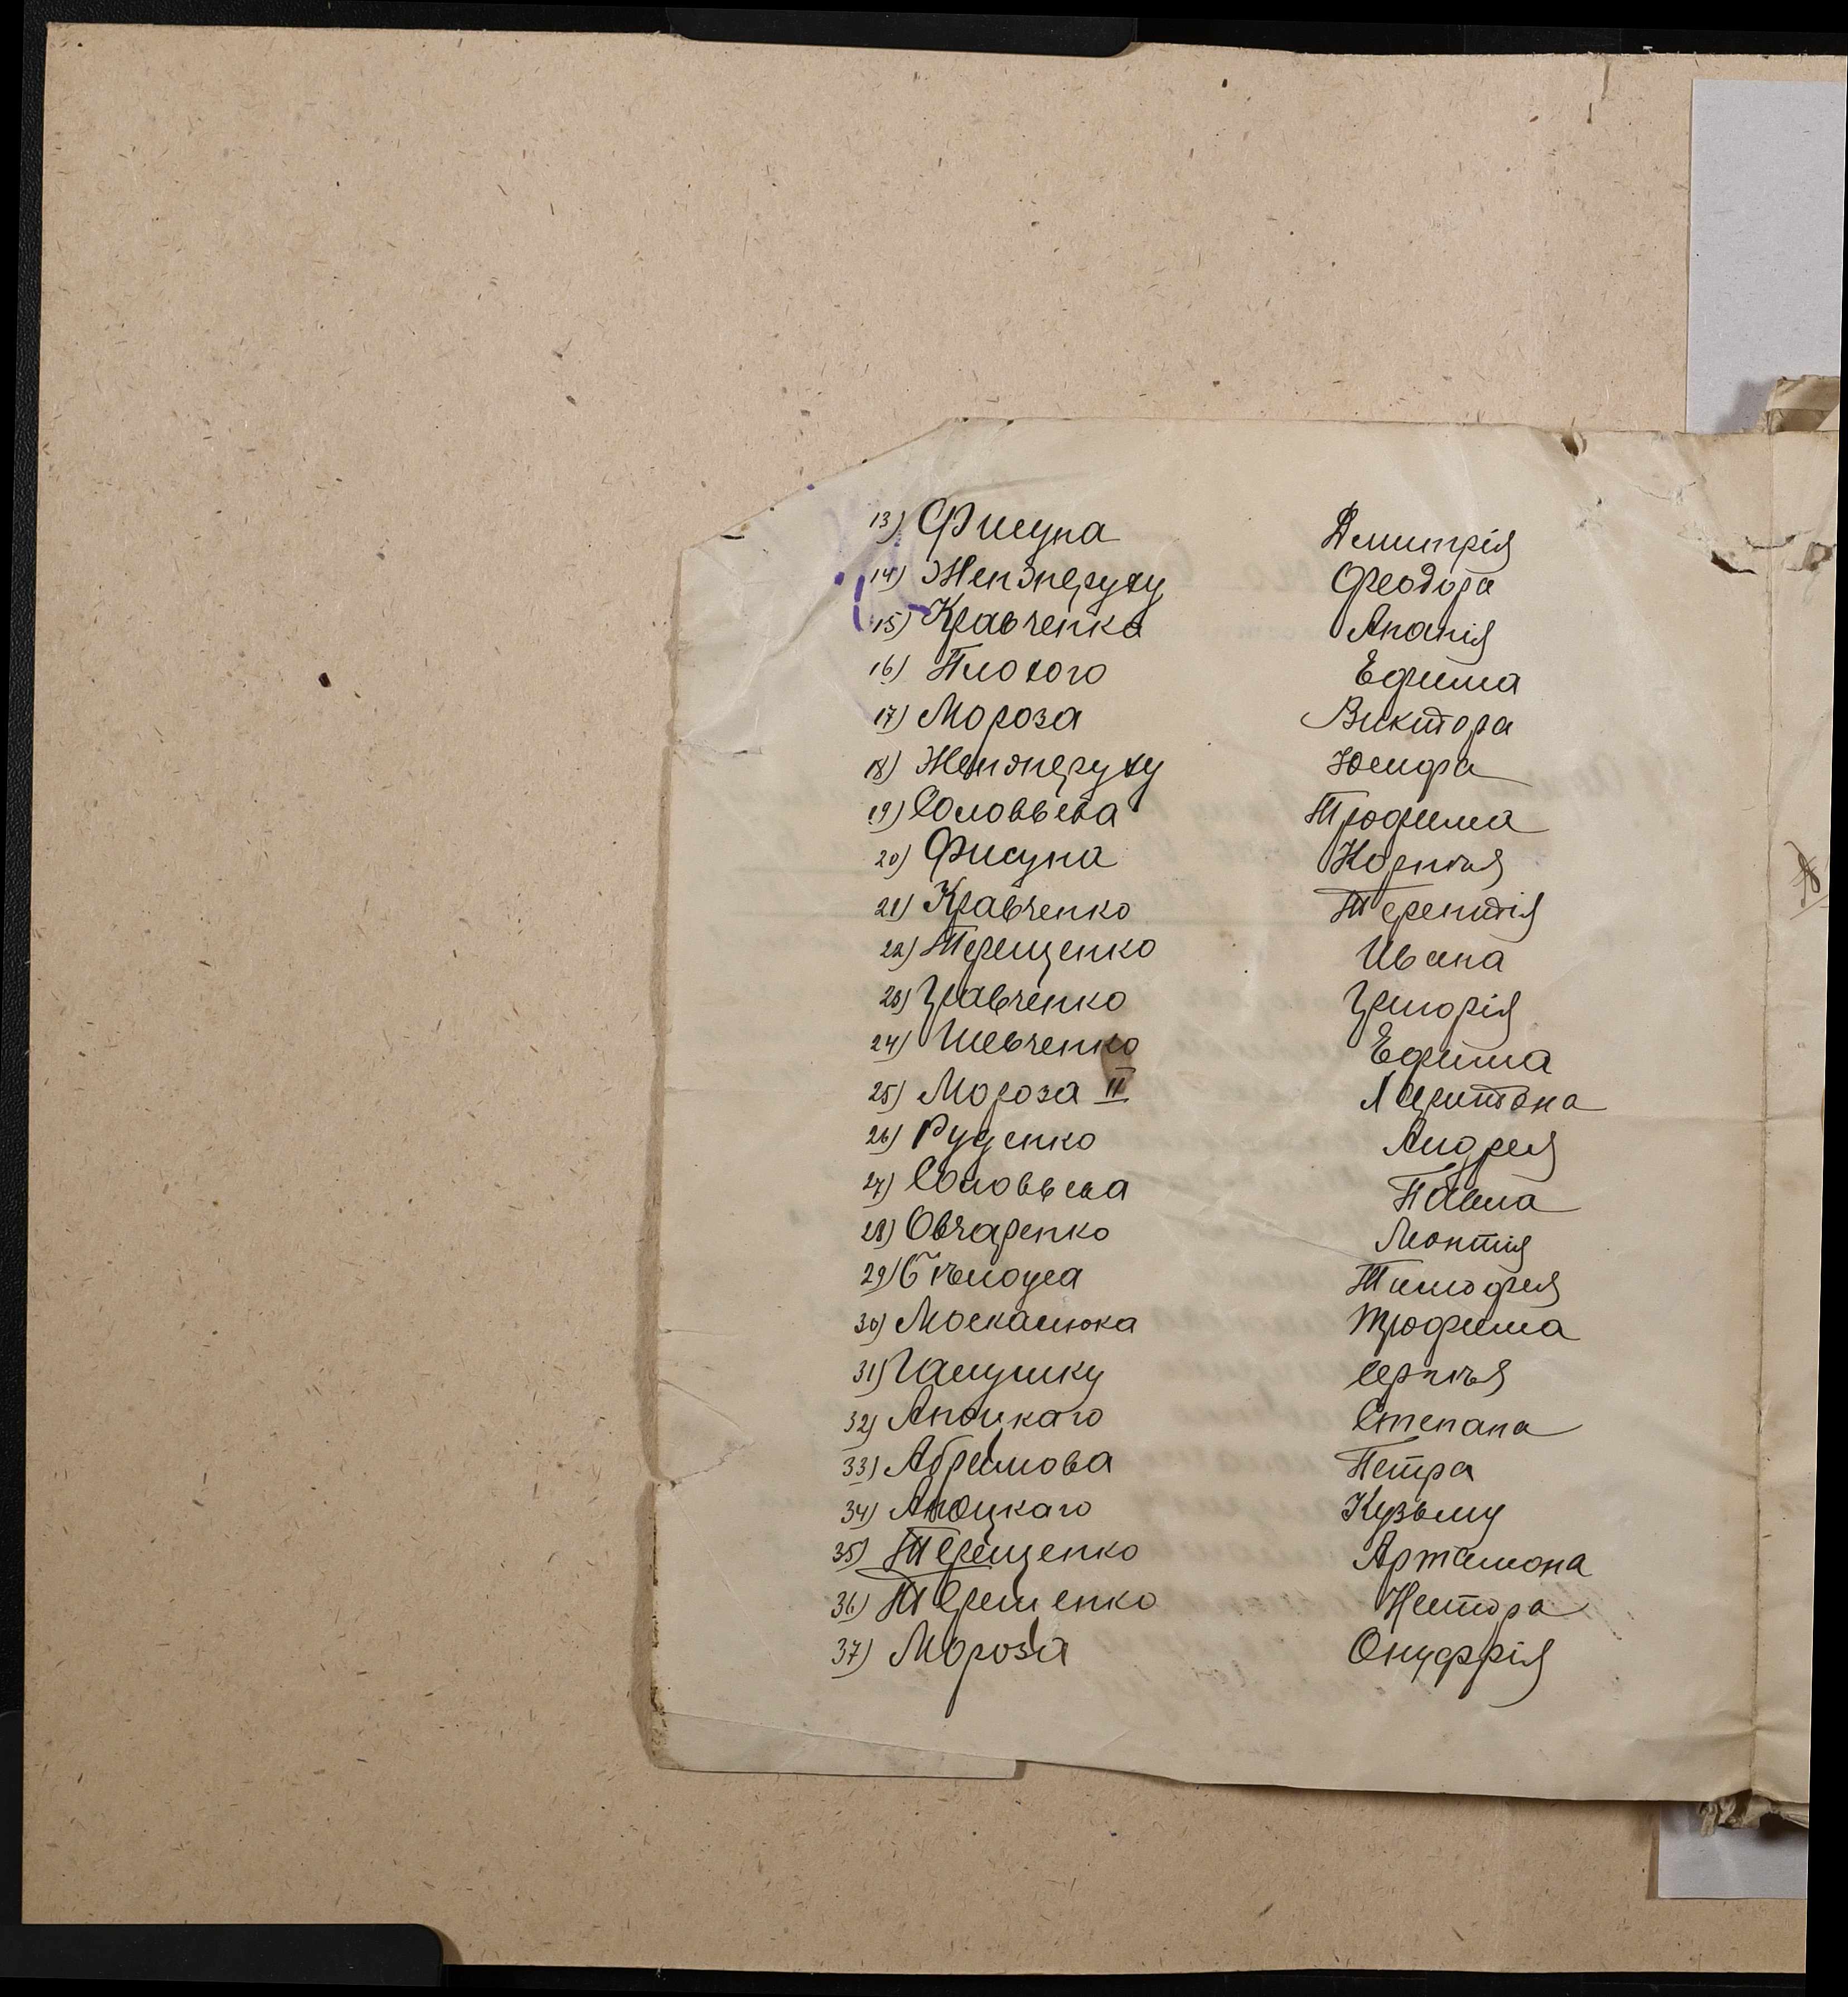 13) Фисуна Дмитрія
14) Непэперуху Феодора
15) Кравченка Ананія
16) Плохого Ефима
17) Мороза Виктора
18) Непэперуху Іосифа
19) Соловьева Трофима
20) Фисуна Корнѣя
21) Кравченко Терентія
22) Терещенко Ивана
23) Кравченко Григорія
24) Шевченко Ефима
25) Мороза II Харитона
26) Руденко Андрея
27) Соловьева Павла
28) Овчаренко Леонтія
29) Бѣлоуса Тимофея
30) Москалюка Трофима
31) Галушку Сергѣя
32) Аноцкаго Степана
33) Абрамова Петра
34) Аноцкаго Кузьму
35) Терещенко Артамона
36) Терешенко Нестора
37) Мороза Онуфрія